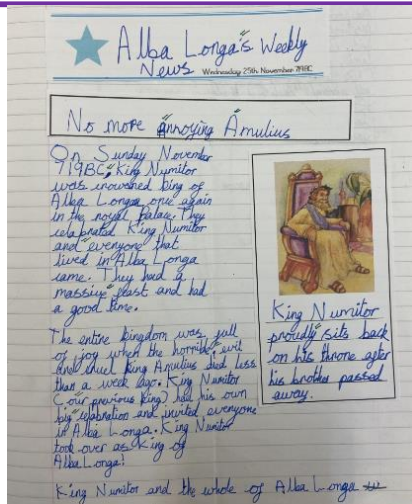 Alba Longa's Weekly
News Wednesday 25th November 719BC
No more annoying Amulius
On Sunday November
719BC, King Numitor
was crowened king of
Alba Longa once again
in the royal palace. They
celabrated King Numitor
and everyone that
lived in Alba Longa
came. They had a
massive feast and had
a good time.
The entire kingdom was full
of joy when the horrible, evil
and cruel King Amulius died less
than a week ago. King Numitor
(our previous king) had his own
big celabration and invited everyone
in Alba Longa. King Numitor
took over as King of
Alba Longa!
King Numitor
proudly sits back
on his throne after
his brother passed
away.
King Numitor and the whole of Alba Longa